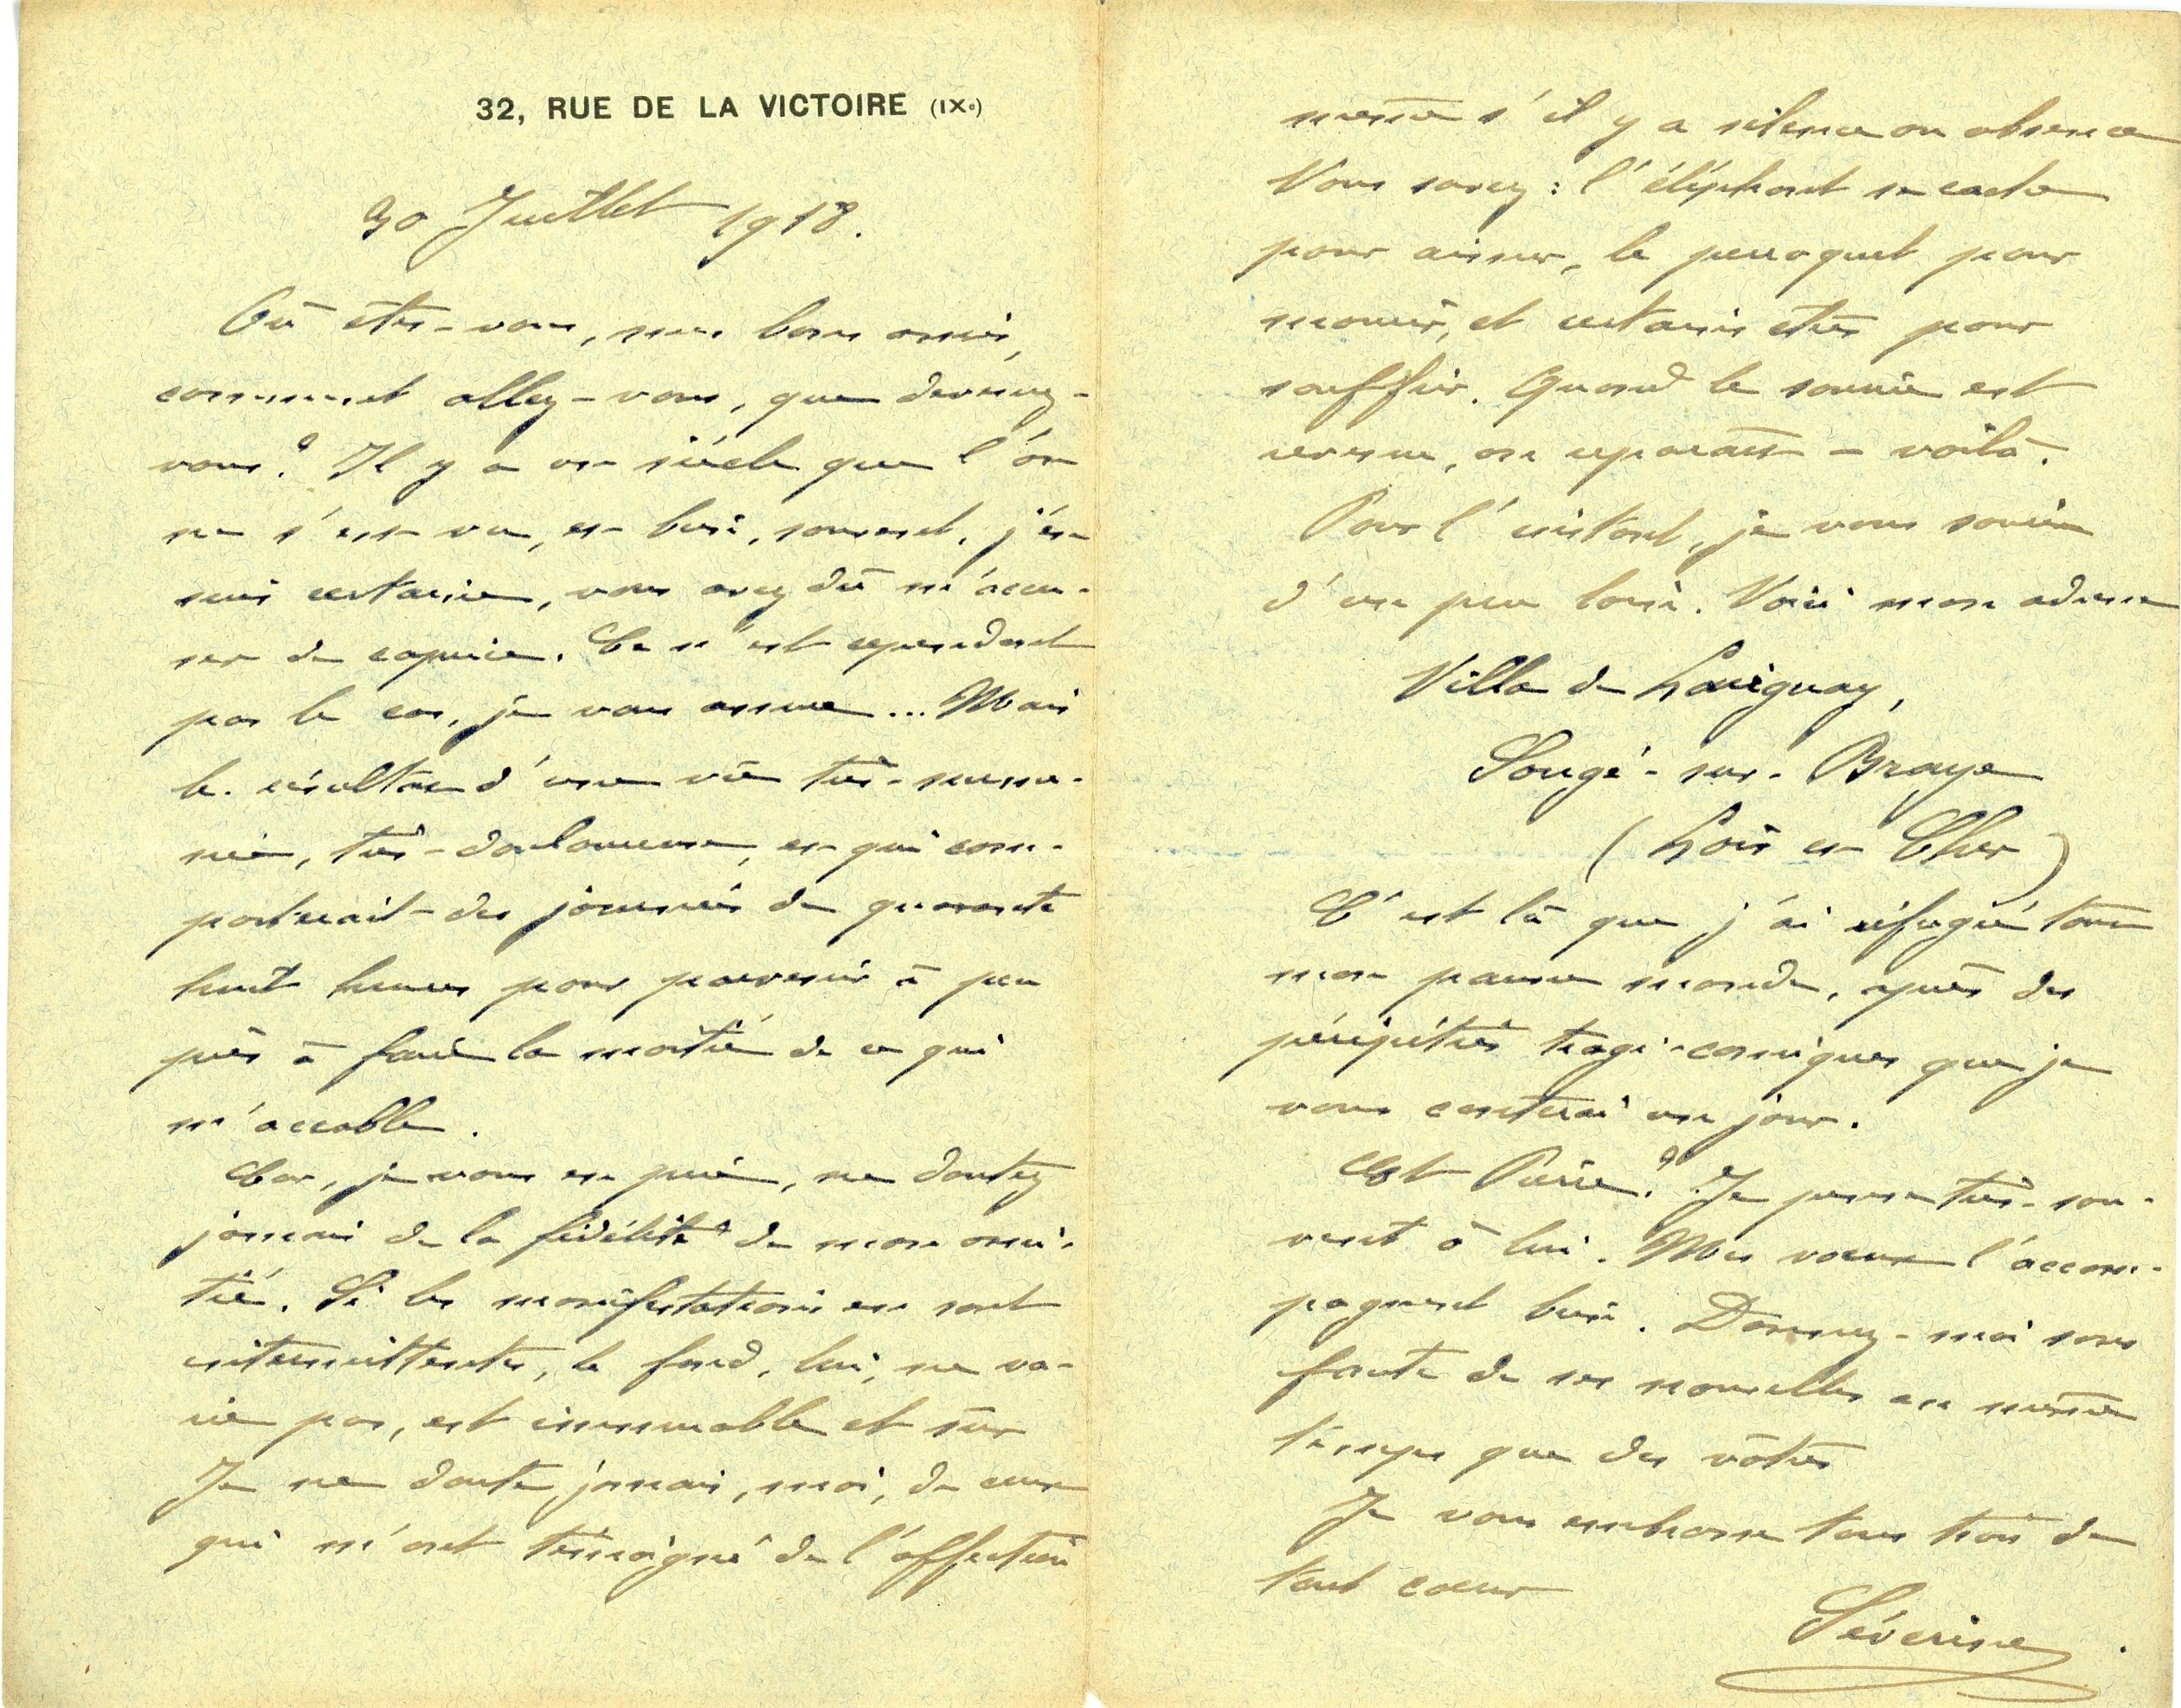 32, RUE DE LA VICTOIRE (IXe)
30 Juillet 1918.
Où êtes-vous, mes bons amis,
comment allez-vous, que devenez-
vous? Il y a un siècle que l'on
ne s'est vu, et bien, souvent, j'en
suis certaine, vous avez dû m'accu-
ser de caprice. Ce n'est cependant
pas le cas, je vous assure... Mais
le résultat d'une vie très-surme-
née, très-douloureuse, et qui com-
porterait des journées de quarante
huit heures pour parvenir à peu
près à faire la moitié de ce qui
m'accable.
Car, je vous en prie, ne doutez
jamais de la fidélité de mon ami-
tié. Si les manifestations en sont
intermittentes, le fond, lui, ne va-
rie pas, est immuable et sûr
Je ne doute jamais, moi, de ceux
qui m'ont témoigné de l'affection
même s'il y a silence ou absence
Vous savez: l'éléphant se cache
pour aimer, le perroquet pour
mourir, et certains êtres pour
souffrir. Quand le sourire est
revenu, on reparaît - voilà.
Pour l'instant, je vous souris
d'un peu loin. Voici mon adresse
Villa de
Sougé-sur-Braye
(Loir et Cher)
C'est là que j'ai réfugié tout
mon pauvre monde, après des
péripéties tragi-comiques que je
vous conterai un jour.
Et Pierre? Je pense très-sou-
vent à lui. Mes vœux l'accom-
pagnent bien. Donnez-moi sans
faute de ses nouvelles en même
temps que des vôtres
Je vous embrasse tous trois de
tout cœur
Séverine.